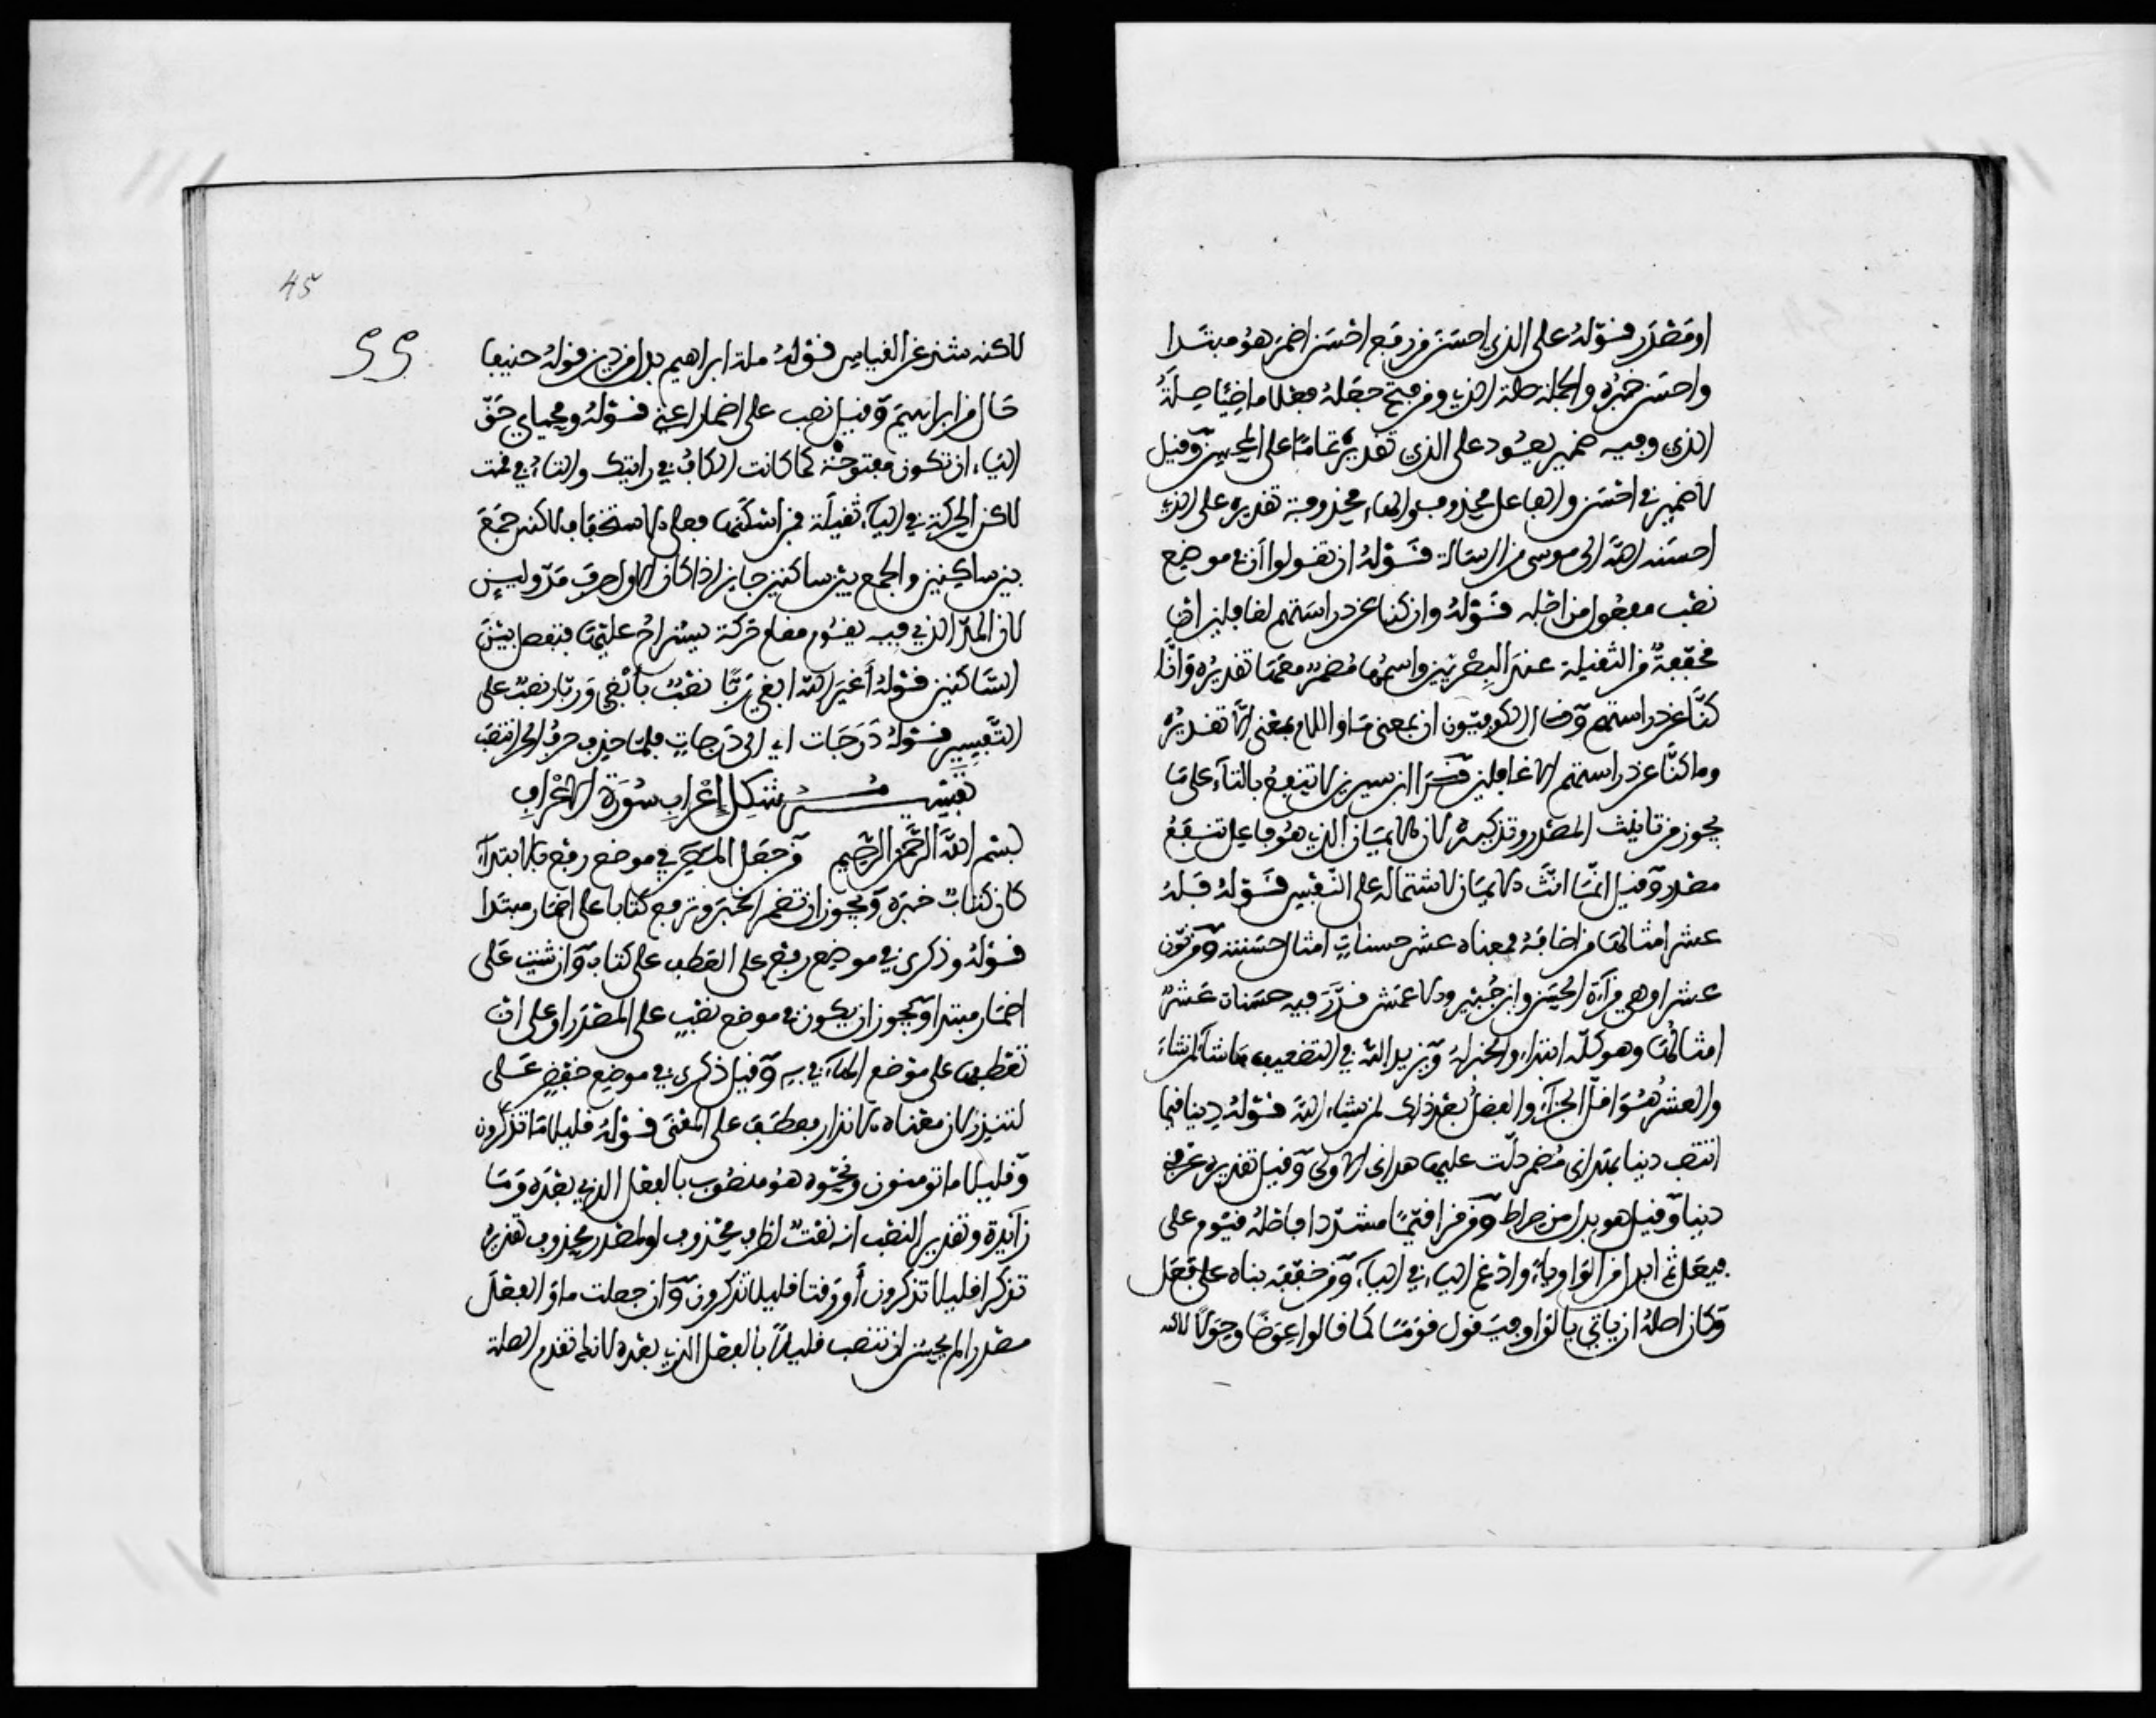 او مصدر قوله على الذي احسن من رفع احسن اضمر هو مبتدا
واحسن خبره والجملة صلة الذي ومن فتح جعله فعلا ماضيا صلة
الذي وفيه ضمير يعود على الذي تقديره تماما على المحسن وقيل
لا ضمير في احسن والفاعل محذوف والهاء محذوفة تقديره على الذي
احسنه الله الى موسى من الرسالة قوله ان تقولوا ان في موضع
نصب مفعول من اجله قوله وان كنا عن دراستهم لغافلين ان
مخففة من الثقيلة عند البصريين واسمها مضمر معها تقديره وانا
كنا عن دراستهم وقال الكوفيون ان بمعنى ما واللام بمعنى الا تقديره
وما كنا عن دراستهم الا غافلين قرا ابن سيرين لا تنفع بالتاء على ما
يجوز من تانيث المصدر وتذكيره لان الايمان الذي هو فاعل تنفع
مصدر وقيل انما انث الايمان لاشتماله على النفس قوله فله
عشر امثالها من اضافه فمعناه عشر حسنات امثال حسنته ومن نون
عشرا وهي قراءة الحسن وابن جبير والاعمش قدر فيه حسنات عشر
امثالها وهو كله ابتداء والخبر له ويزيد الله في التضعيف ما شاء لمن شاء
والعشر هو اقل الجزاء والفضل بعد ذلك لمن يشاء الله قوله دينا قيما
انتصب دينا بهداني مضمر دلت عليها هداني الاولى وقيل تقديره عرفني
دينا وقيل هو بدل من صراط ومن قرا قيما مشددا فاصله قيوم على
فيعل ثم ابدل من الواو ياء وادغم الياء في الياء ومن خففه بناه على فعل
وكان اصله ان ياتي بالواو فيقول قوما كما قالوا عوضا وحولا لاكنه
45
55
لاكنه شذ عن القياس قوله ملة ابراهيم بدل من دين قوله حنيفا
حال من ابراهيم وقيل نصب على اضمار اعني قوله ومحياي حق
الياء ان تكون مفتوحة كما كانت الكاف في رايتك والتاء في قمت
لاكن الحركة في الياء ثقيلة فمن اسكنها فعلى الاستخفاف لاكنه جمع
بين ساكنين والجمع بين ساكنين جايز اذا كان الاول حرف مد ولين
لان المد الذي فيه يقوم مقام حركة يستراح عليها فيفصل بين
الساكنين قوله أغير الله ابغي ربا نصب بأبغي وربا نصب على
التفسير قوله درجات اي الى درجات فلما حذف حرف الجر انتصب
تفسير مشكل إعراب سورة الاعراف
بسم الله الرحمن الرحيم من جعل المص في موضع رفع بالابتداء
كان كتاب خبره ويجوز ان تضمر الخبر وترفع كتابا على اضمار مبتدا
قوله وذكرى في موضع رفع على العطف على كتاب وان شيت على
اضمار مبتدا ويجوز ان يكون في موضع نصب على المصدر او على ان
تعطفها على موضع الهاء في به وقيل ذكرى في موضع خفض على
لتنذر لان معناه الانذار فعطف على المعنى قوله قليلا ما تذكرون
وقليلا ما تومنون ونحوه هو منصوب بالفعل الذي بعده وما
زايدة وتقدير النصب انه نعت لظرف محذوف او لمصدر محذوف تقديره
تذكرا قليلا تذكرون أو وقتا قليلا تذكرون وان جعلت ما والفعل
مصدرا لم يحسن ان تنصب قليلا بالفعل الذي بعده لانك تقدم الصلة